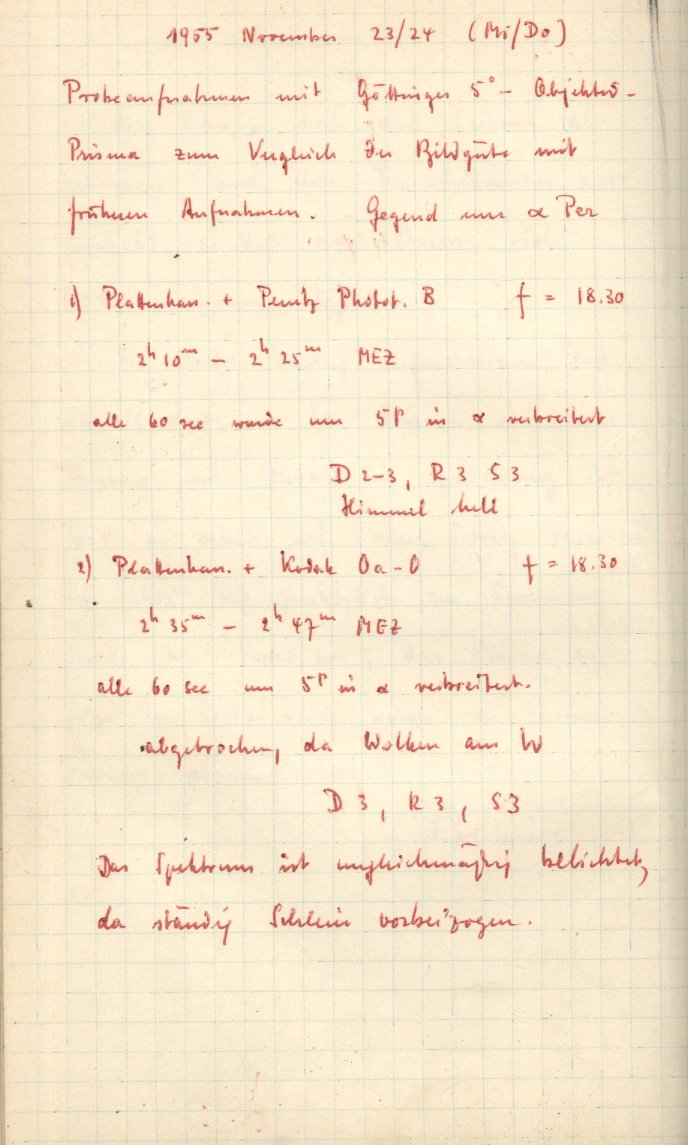 1955 November 23/24 (Mi/Do)
Probeaufnahmen mit Göttinger 5°- Objektiv-
Prisma zum Vergleich der Bildgüte mit
früheren Aufnahmen. Gegend um α Per
1) Plattenhan. + Perutz Photot. B f = 18.30
2h 10m – 2h 25m MEZ
alle 60 sec wurde um 5P in α verbreitert
D 2-3, R 3 S 3
Himmel hell
2) Plattenhan. + Kodak Oa-O f = 18.30
2h 35m – 2h 47m MEZ
alle 60 sec um 5P in α verbreitert.
abgebrochen, da Wolken aus W
D 3, R 3, S 3
Das Spektrum ist ungleichmäßig belichtet,
da ständig Schleier vorbeizogen.